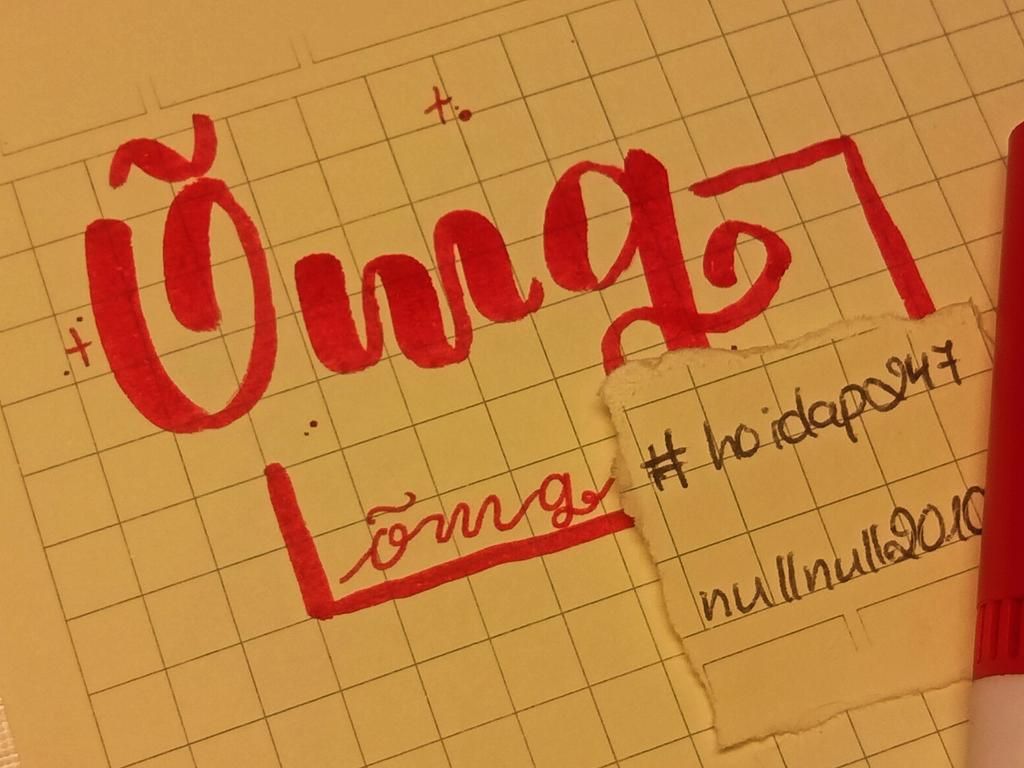 Õmg
õmg
#hoidap247
nullnull2010